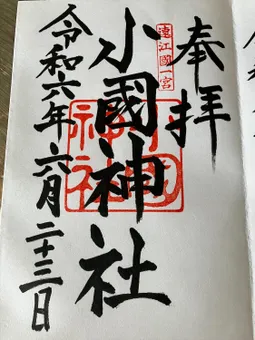 奉拝
遠江國一宮
小國神社
令和六年六月二十三日